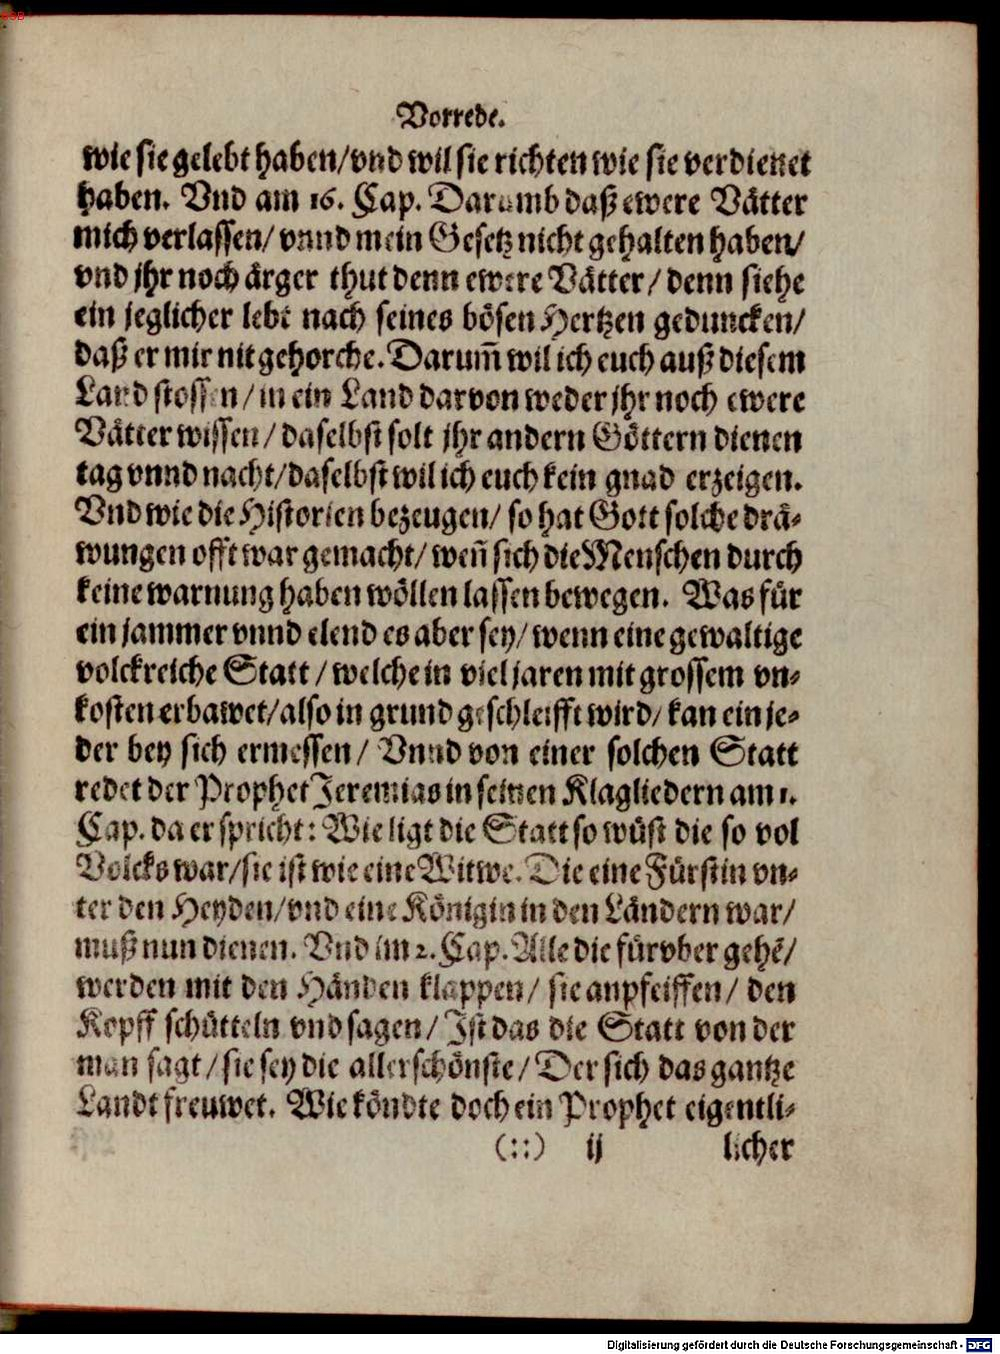 BSB
Vorrede.
wie sie gelebt haben/vnd wil sie richten wie sie verdienet
haben. Vnd am 16. Cap. Darumb daß ewere Vätter
mich verlassen/ vnnd mein Gesetz nicht gehalten haben/
vnd jhr noch ärger thut denn ewere Vätter/ denn siehe
ein jeglicher lebt nach seines bösen Hertzen geduncken/
daß er mir nit gehorche. Darum̃ wil ich euch auß diesem
Land stossen/ in ein Land darvon weder jhr noch ewere
Vätter wissen/ daselbst solt jhr andern Göttern dienen
tag vnnd nacht/daselbst wil ich euch kein gnad erzeigen.
Vnd wie die Historien bezeugen/ so hat Gott solche drä-
wungen offt war gemacht/ weñ sich die Menschen durch
keine warnung haben wöllen lassen bewegen. Was für
ein jammer vnnd elend es aber sey/ wenn eine gewaltige
volckreiche Statt/ welche in viel jaren mit grossem vn-
kosten erbawet/also in grund geschleifft wird/ kan ein je-
der bey sich ermessen/ Vnnd von einer solchen Statt
redet der Prophet Jeremias in seinen Klagliedern am 1.
Cap. da er spricht: Wie ligt die Statt so wüst die so vol
Volcks war/sie ist wie eine Witwe. Die eine Fürstin vn-
ter den Heyden/vnd eine Königin in den Ländern war/
muß nun dienen. Vnd im 2. Cap. Alle die fürvber gehẽ/
werden mit den Händen klappen/ sie anpfeiffen/ den
Kopff schütteln vnd sagen/ Ist das die Statt von der
man sagt/ sie sey die allerschönste/ Der sich das gantze
Landt freuwet. Wie köndte doch ein Prophet eigentli-
(::) ij licher
Digitalisierung gefördert durch die Deutsche Forschungsgemeinschaft - DFG